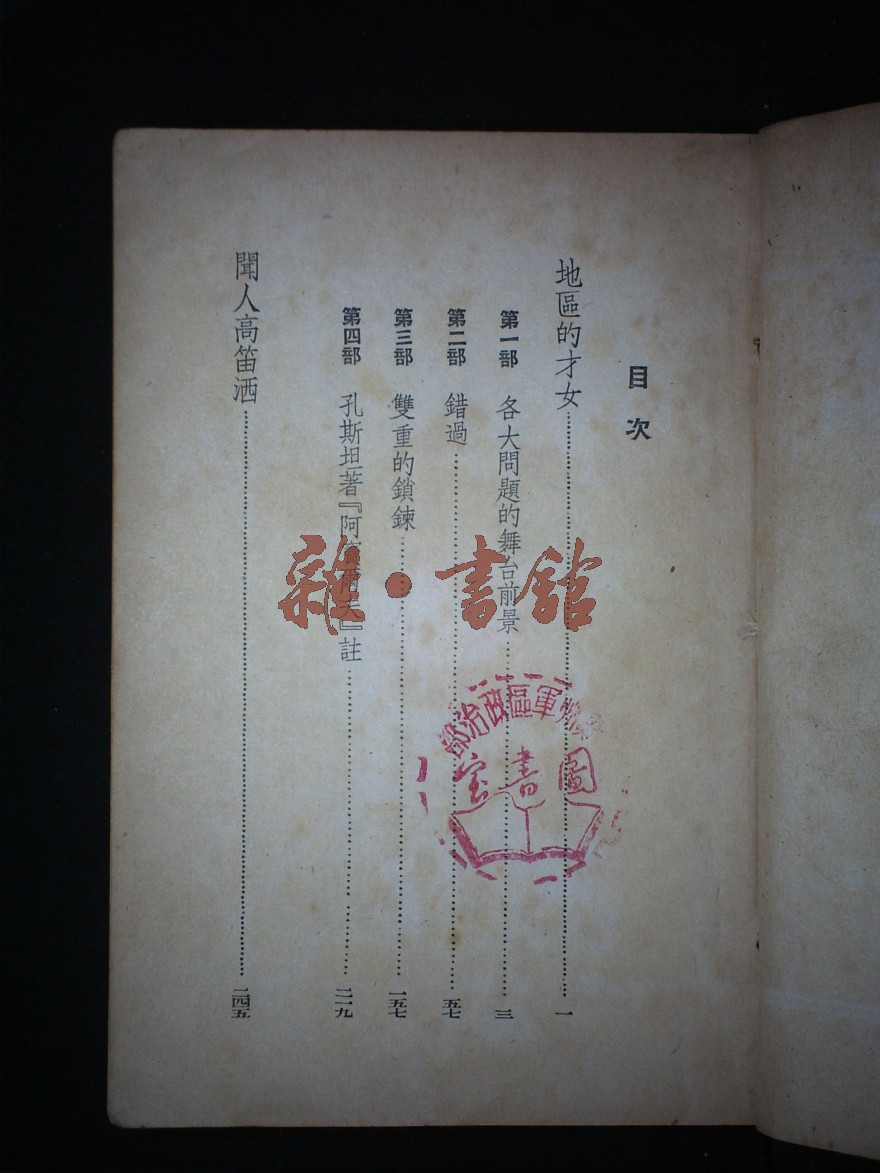 目次
地區的才女……一
第一部 各大問題的舞台前景……三
第二部 錯過……五七
第三部 雙重的鎖鍊……一五七
第四部 孔斯坦著『阿 爾夫』註……二一九
聞人高笛洒……二四五
雜·書館
軍區政治部
圖書室